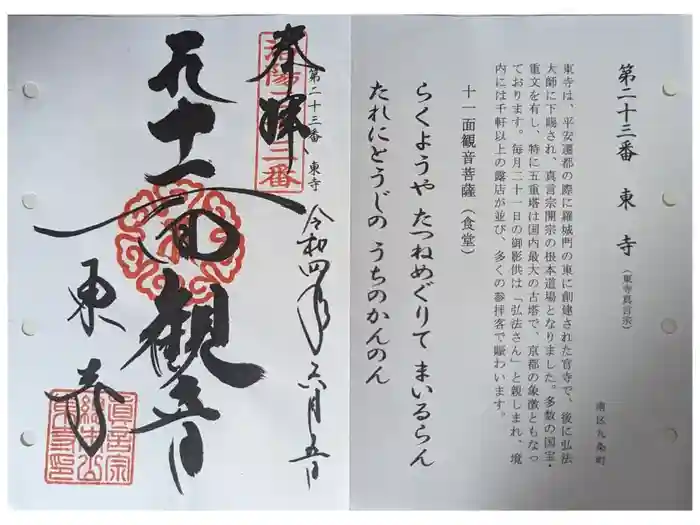 第二十三番 東寺 (東寺真言宗)
南区九条町
東寺は、平安遷都の際に羅城門の東に創建された官寺で、後に弘法
大師に下賜され、真言宗開宗の根本道場となりました。多数の国宝・
重文を有し、特に五重塔は国内最大の古塔で、京都の象徴ともなっ
ております。毎月二十一日の御影供は「弘法さん」と親しまれ、境
内には千軒以上の露店が並び、多くの参拝客で賑わいます。
十一面観音菩薩(食堂)
らくようや たつねめぐりて まいるらん
たれにとうじの うちのかんのん
第二十三番、東寺
令和四年六月五日
奉拝
洛陽二十三番
十一面観音
東寺
真言宗
総本山
東寺印